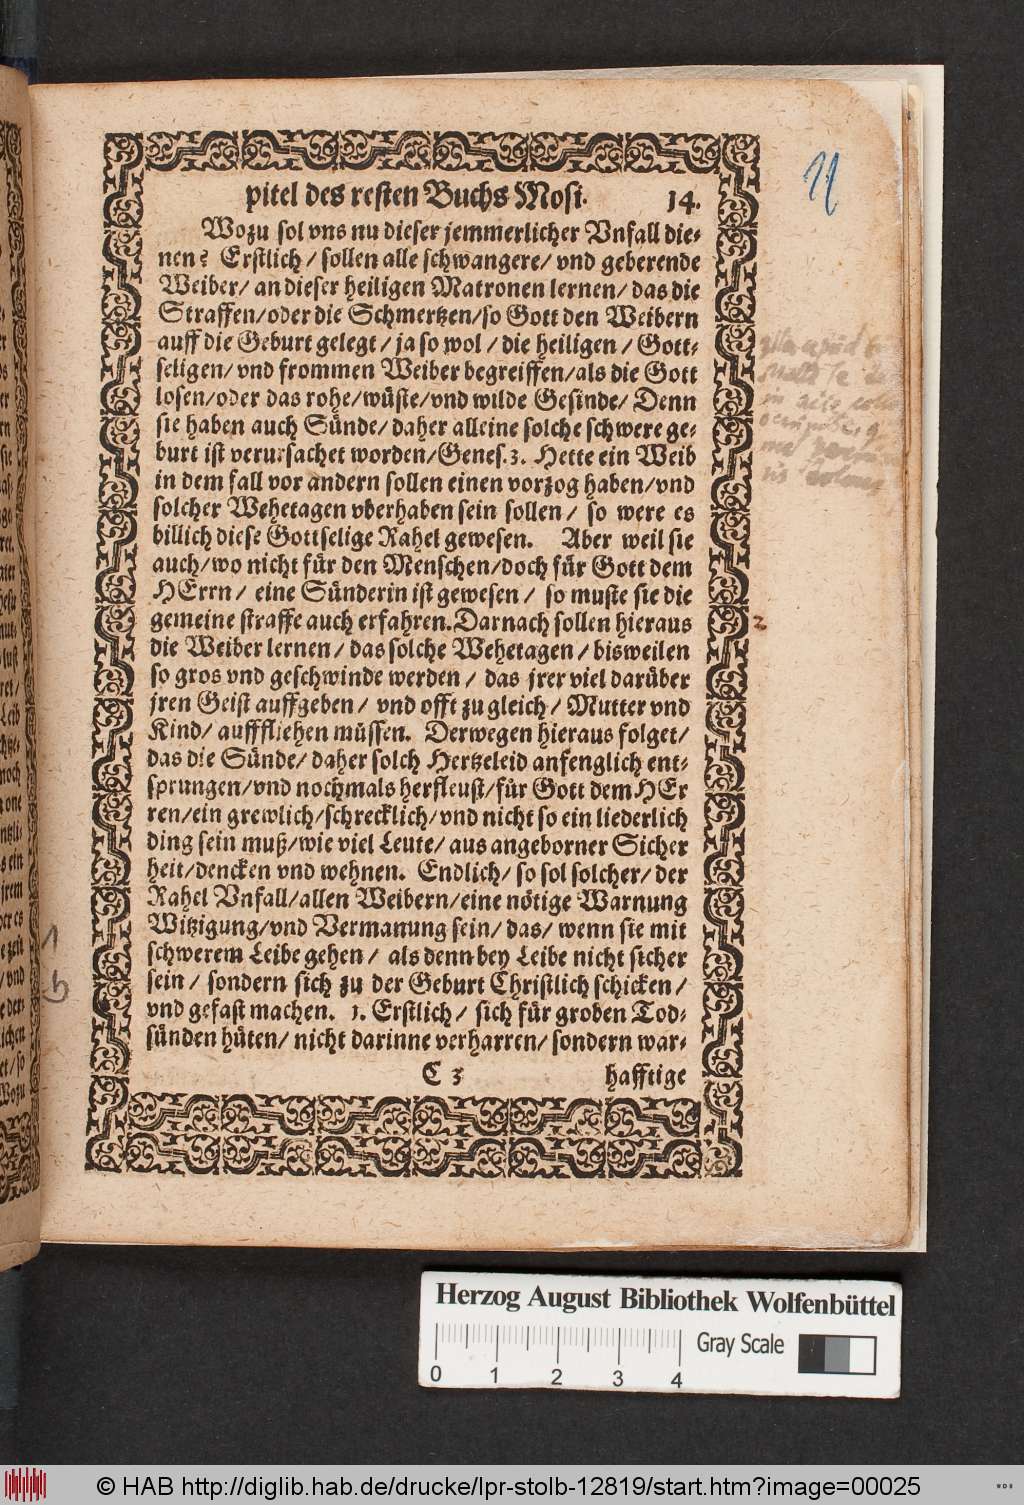 pitel des resten Buchs Mosi. 14.
Wozu sol vns nu dieser jemmerlicher Vnfall die-
nen? Erstlich / sollen alle schwangere/ vnd geberende
Weiber/ an dieser heiligen Matronen lernen/ das die
Straffen/oder die Schmertzen/so Gott den Weibern
auff die Geburt gelegt / ja so wol / die heiligen / Gott-
seligen/ vnd frommen Weiber begreiffen/als die Gott
losen/oder das rohe/wüste/vnd wilde Gesinde/ Denn
sie haben auch Sünde/ daher alleine solche schwere ge-
burt ist verursachet worden/Genes.3. Hette ein Weib
in dem fall vor andern sollen einen vorzog haben/vnd
solcher Wehetagen vberhaben sein sollen / so were es
billich diese Gottselige Rahel gewesen. Aber weil sie
auch/wo nicht für den Menschen/doch für Gott dem
HErrn / eine Sünderin ist gewesen / so muste sie die
gemeine straffe auch erfahren. Darnach sollen hieraus
die Weiber lernen/ das solche Wehetagen / bisweilen
so gros vnd geschwinde werden / das jrer viel darüber
jren Geist auffgeben / vnd offt zu gleich / Mutter vnd
Kind/ auffliehen müssen. Derwegen hieraus folget/
das die Sünde/ daher solch Hertzeleid anfenglich ent-
sprungen/vnd nochmals herfleust/für Gott dem HEr
ren/ein grewlich/schrecklich/vnd nicht so ein liederlich
ding sein muß/wie viel Leute/ aus angeborner Sicher
heit/dencken vnd wehnen. Endlich/ so sol solcher/ der
Rahel Vnfall/allen Weibern/eine nötige Warnung
Witzigung/vnd Vermanung sein/ das/ wenn sie mit
schwerem Leibe gehen / als denn bey Leibe nicht sicher
sein / sondern sich zu der Geburt Christlich schicken /
vnd gefast machen. 1. Erstlich / sich für groben Tod-
sünden hüten/ nicht darinne verharren/ sondern war-
C 3 hafftige
2
Herzog August Bibliothek Wolfenbüttel
Gray Scale
0 1 2 3 4
© HAB http://diglib.hab.de/drucke/lpr-stolb-12819/start.htm?image=00025